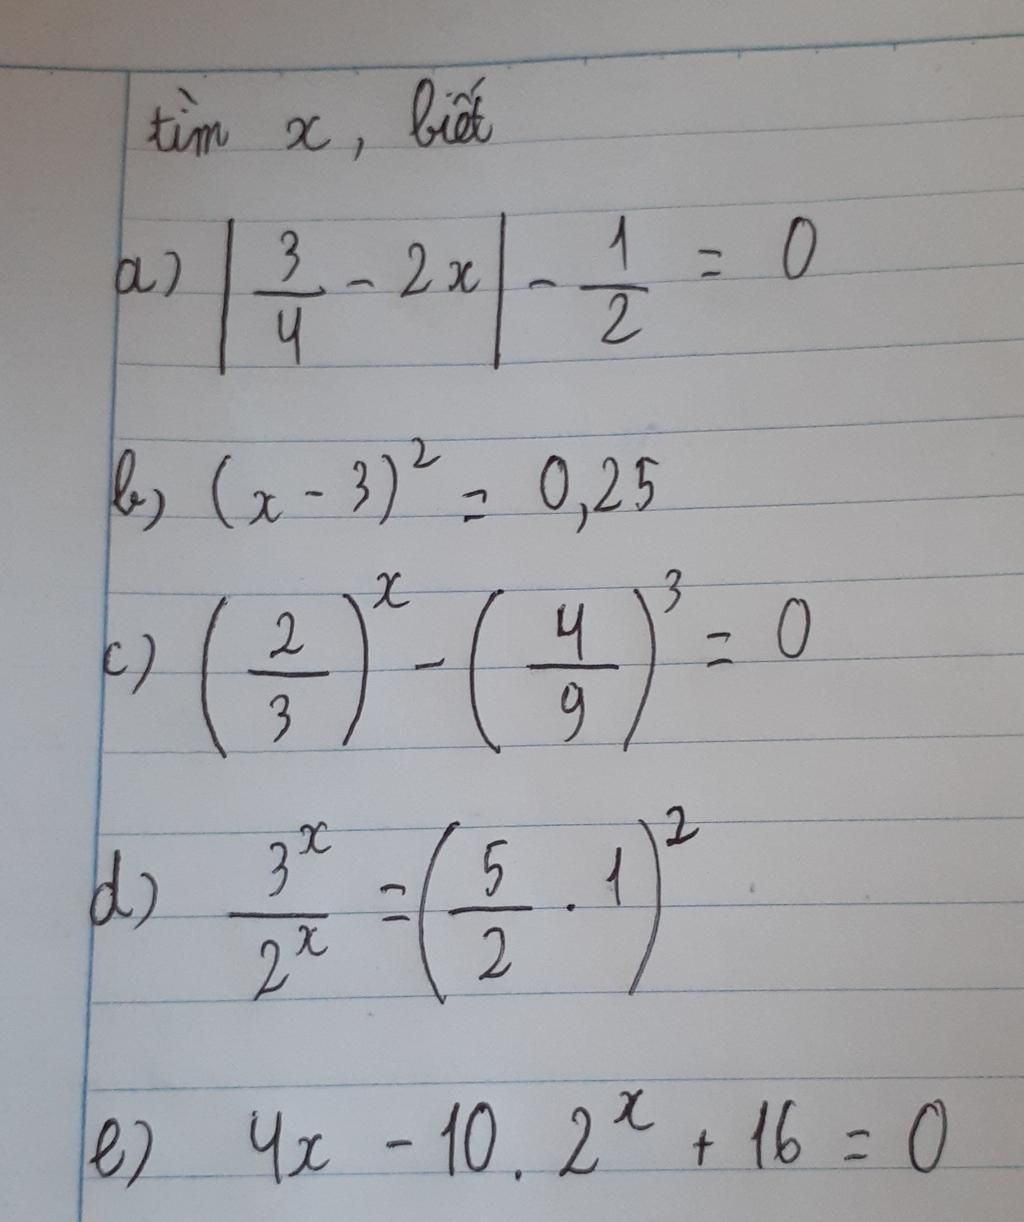 tìm x, biết
a) |3/4 - 2x| - 1/2 = 0
b) (x - 3)² = 0,25
c) (2/3)ˣ - (4/9)³ = 0
d) 3ˣ/2ˣ = (5/2 . 1)²
e) 4x - 10. 2ˣ + 16 = 0